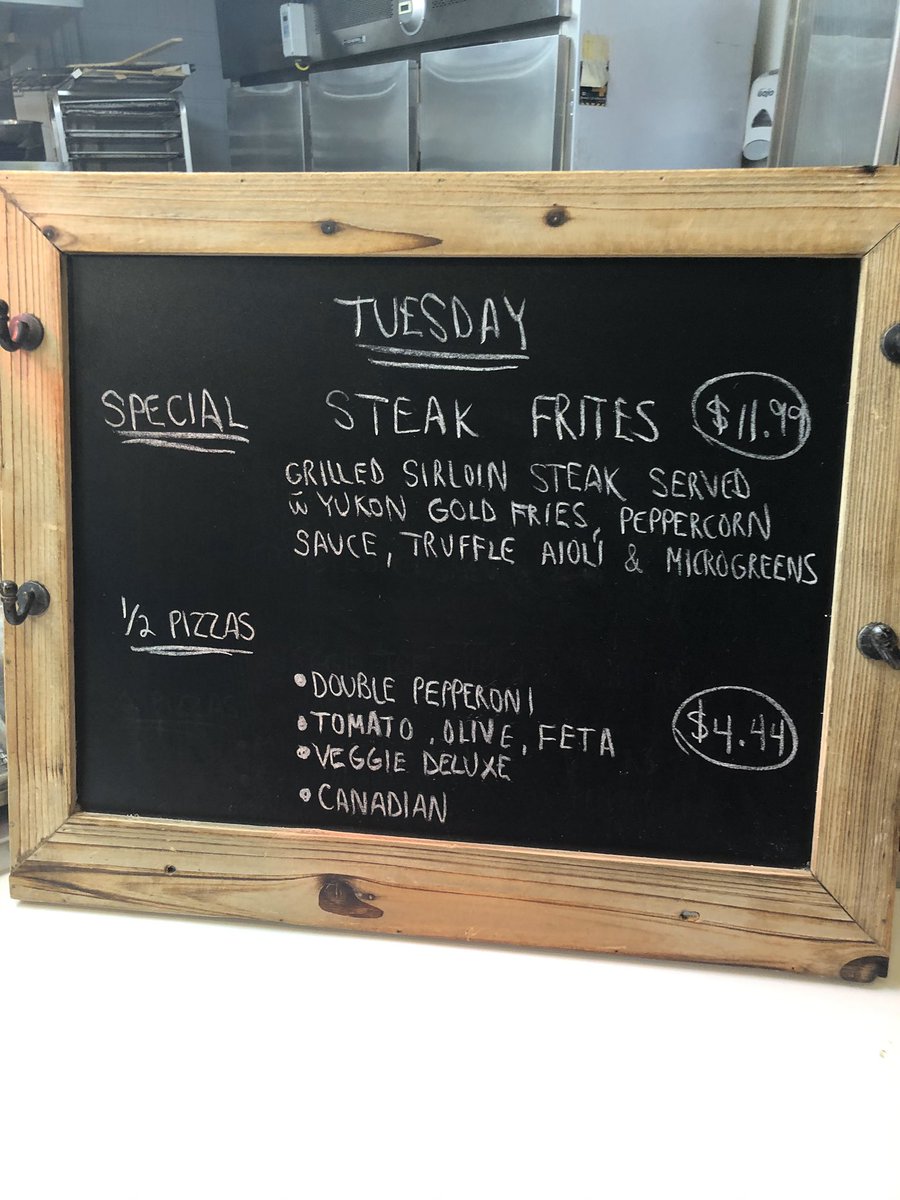 GOJO
TUESDAY
SPECIAL STEAK FRITES $11.99
GRILLED SIRLOIN STEAK SERVED
w̄ YUKON GOLD FRIES, PEPPERCORN
SAUCE, TRUFFLE AIOLI & MICROGREENS
1/2 PIZZAS
• DOUBLE PEPPERONI
• TOMATO, OLIVE, FETA $4.44
• VEGGIE DELUXE
• CANADIAN